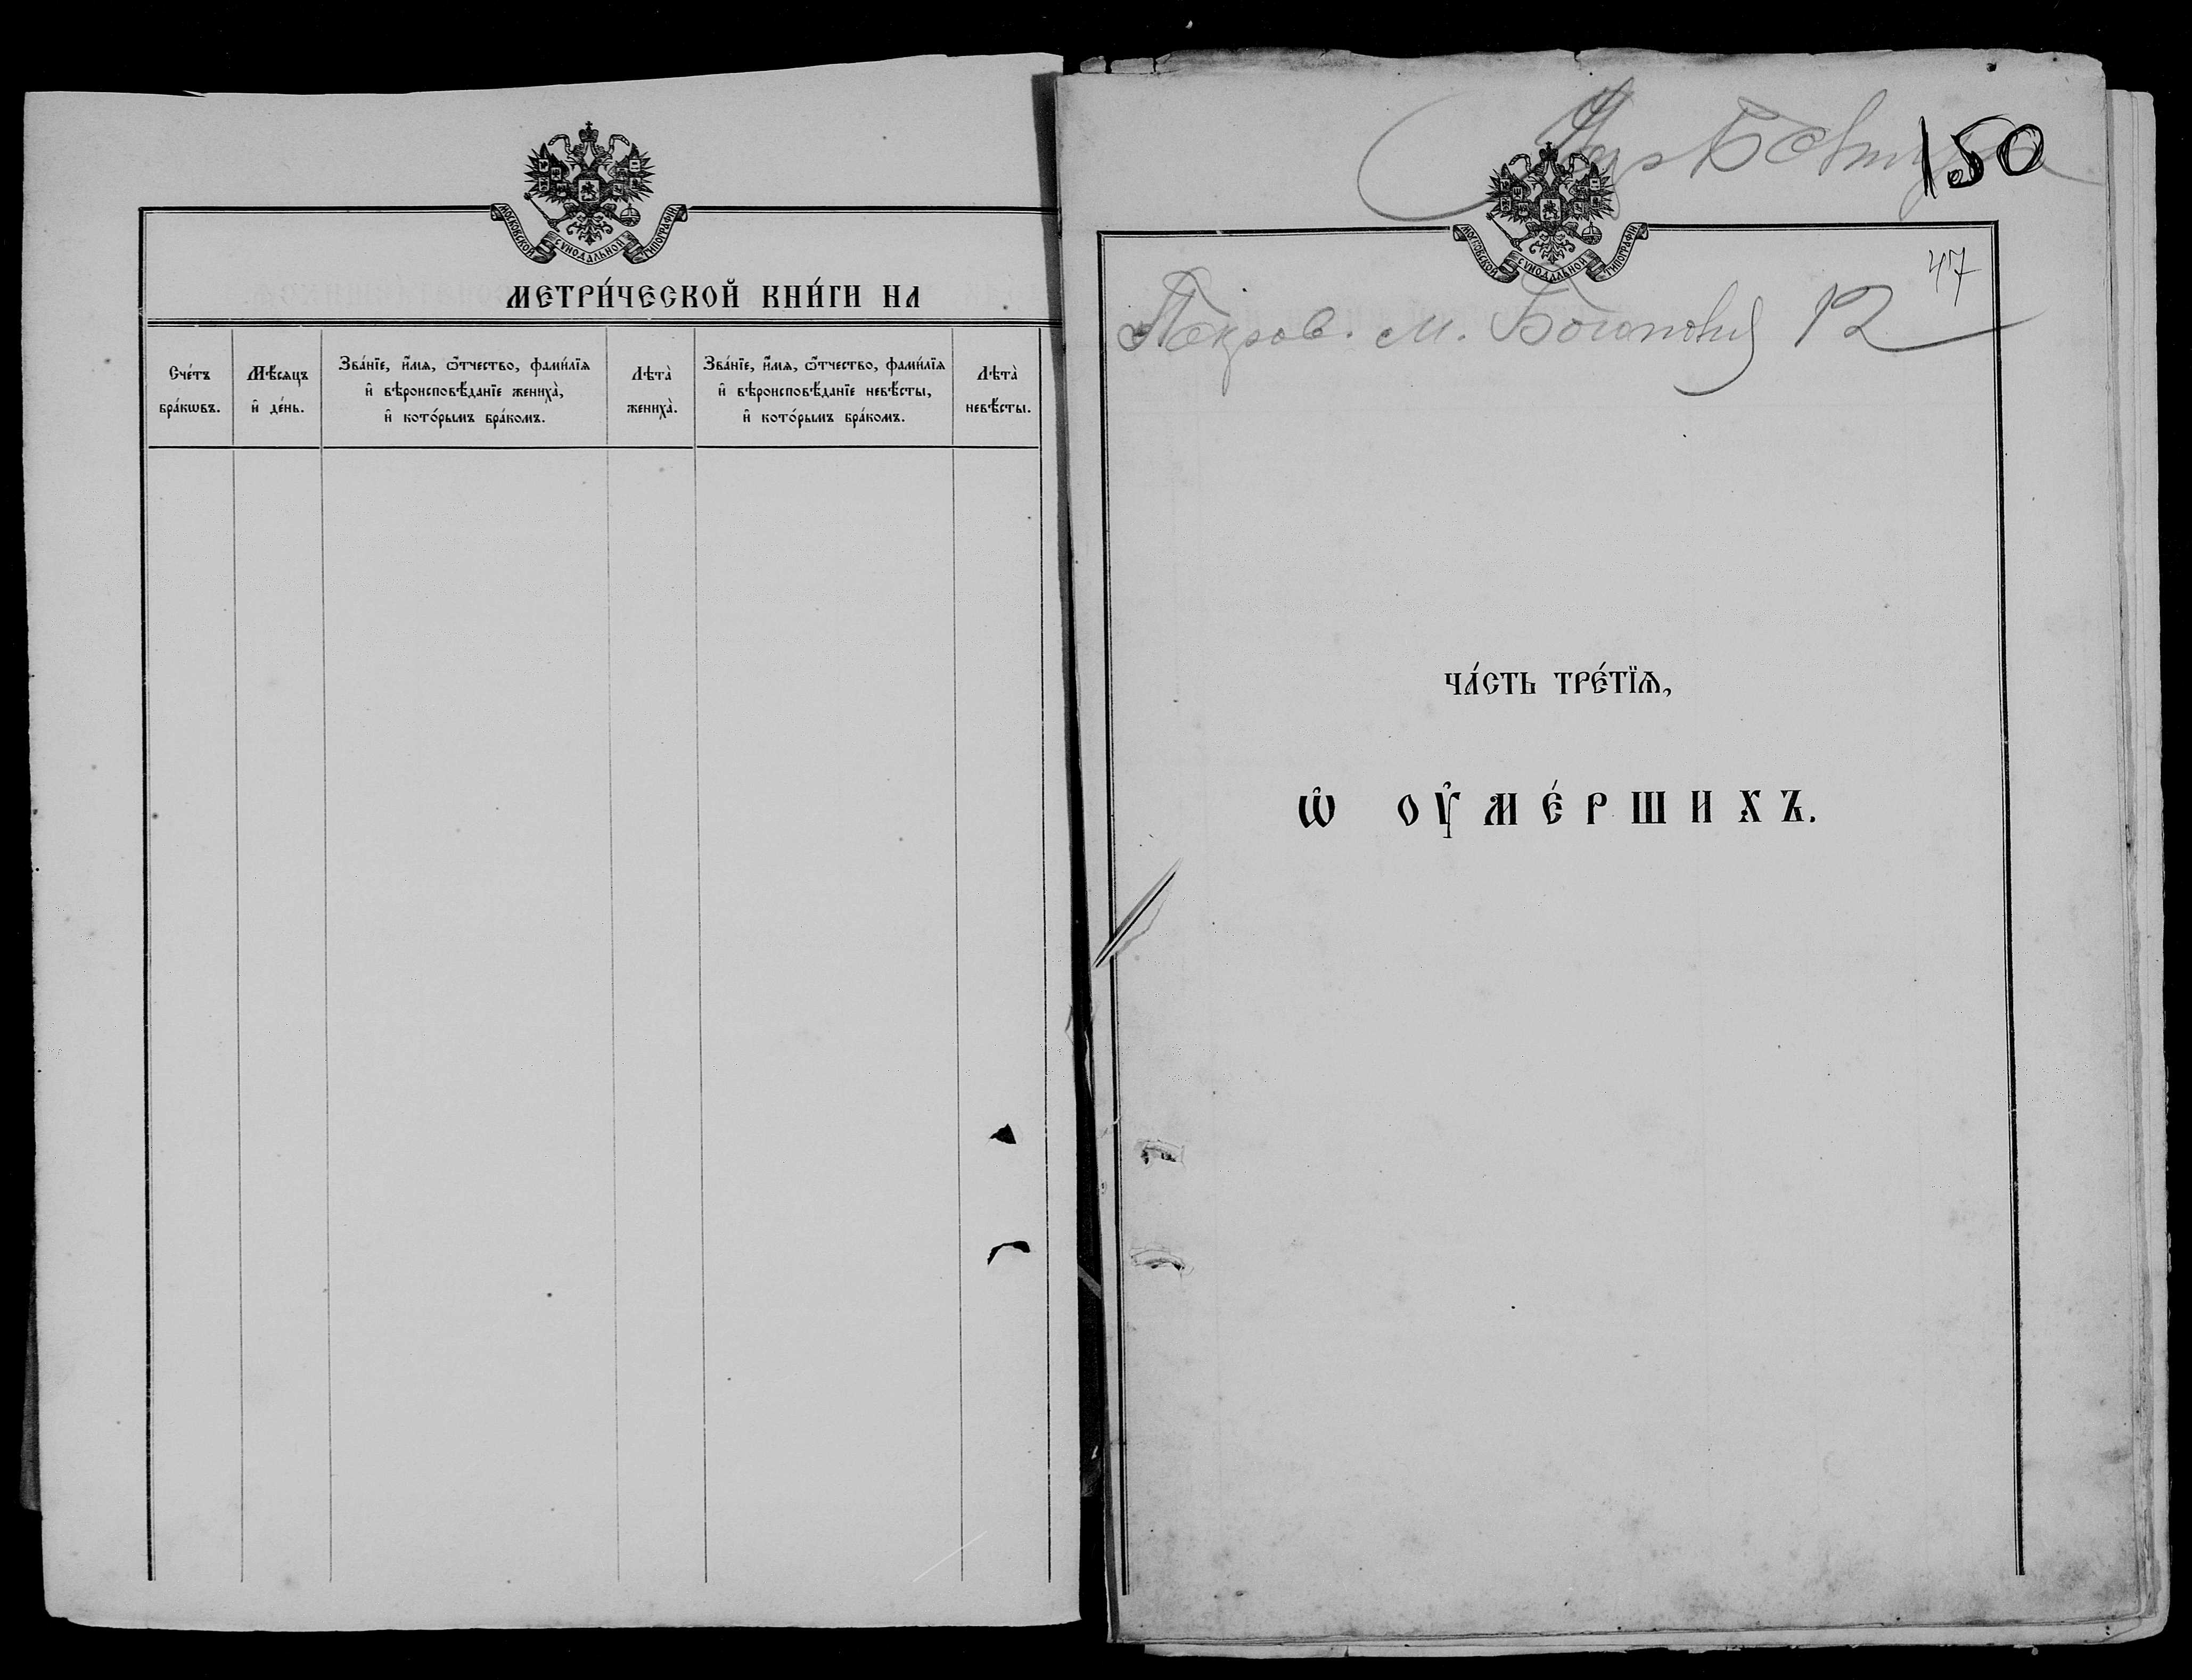 МОСКОВСКОЙ СѴНОДАЛЬНОЙ ТИПОГРАФІИ
МЕТРИ́ЧЕСКОЙ КНИ́ГИ НА
Сче́тъ бра́кѡвъ.
Мѣ́сяцъ и҆ де́нь.
Зва́нїе, и҆́мѧ, ѻ҆́тчество, фами́лїѧ
и҆ вѣроисповѣ́данїе жениха̀,
и҆ кото́рымъ бра́комъ.
Лѣта̀ жениха̀.
Зва́нїе, и҆́мѧ, ѻ҆́тчество, фами́лїѧ
и҆ вѣроисповѣ́данїе невѣ́сты,
и҆ кото́рымъ бра́комъ.
Лѣта̀ невѣ́сты.
150
МОСКОВСКОЙ СѴНОДАЛЬНОЙ ТИПОГРАФІИ
47
Покров. м. 12
ЧА́СТЬ ТРЕ́ТЇѦ,
Ѡ҆ ОУ҆МЕ́РШИХЪ.